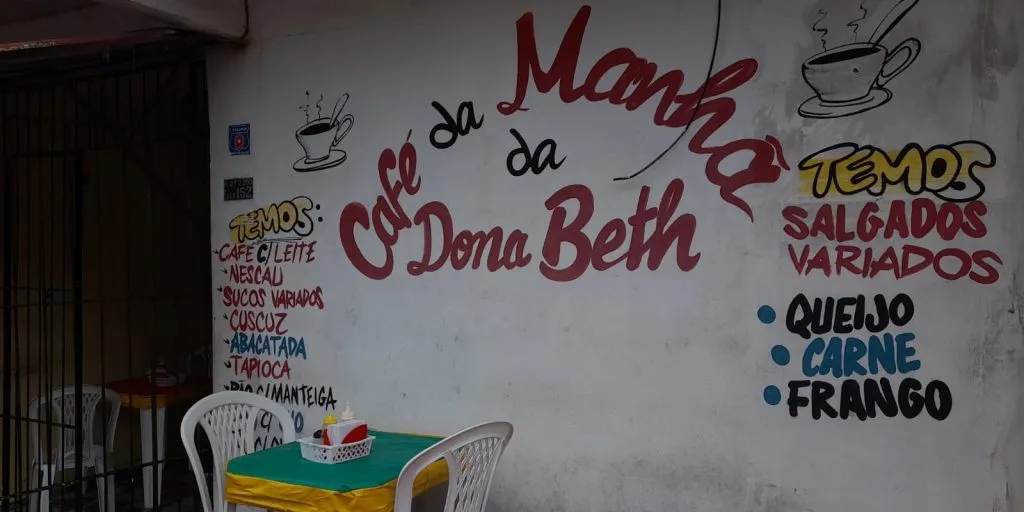 Café da Manhã
da
Dona Beth
TEMOS:
CAFÉ C/ LEITE
NESCAU
SUCOS VARIADOS
CUSCUZ
ABACATADA
TAPIOCA
C/ MANTEIGA
C/
TEMOS
SALGADOS
VARIADOS
QUEIJO
CARNE
FRANGO